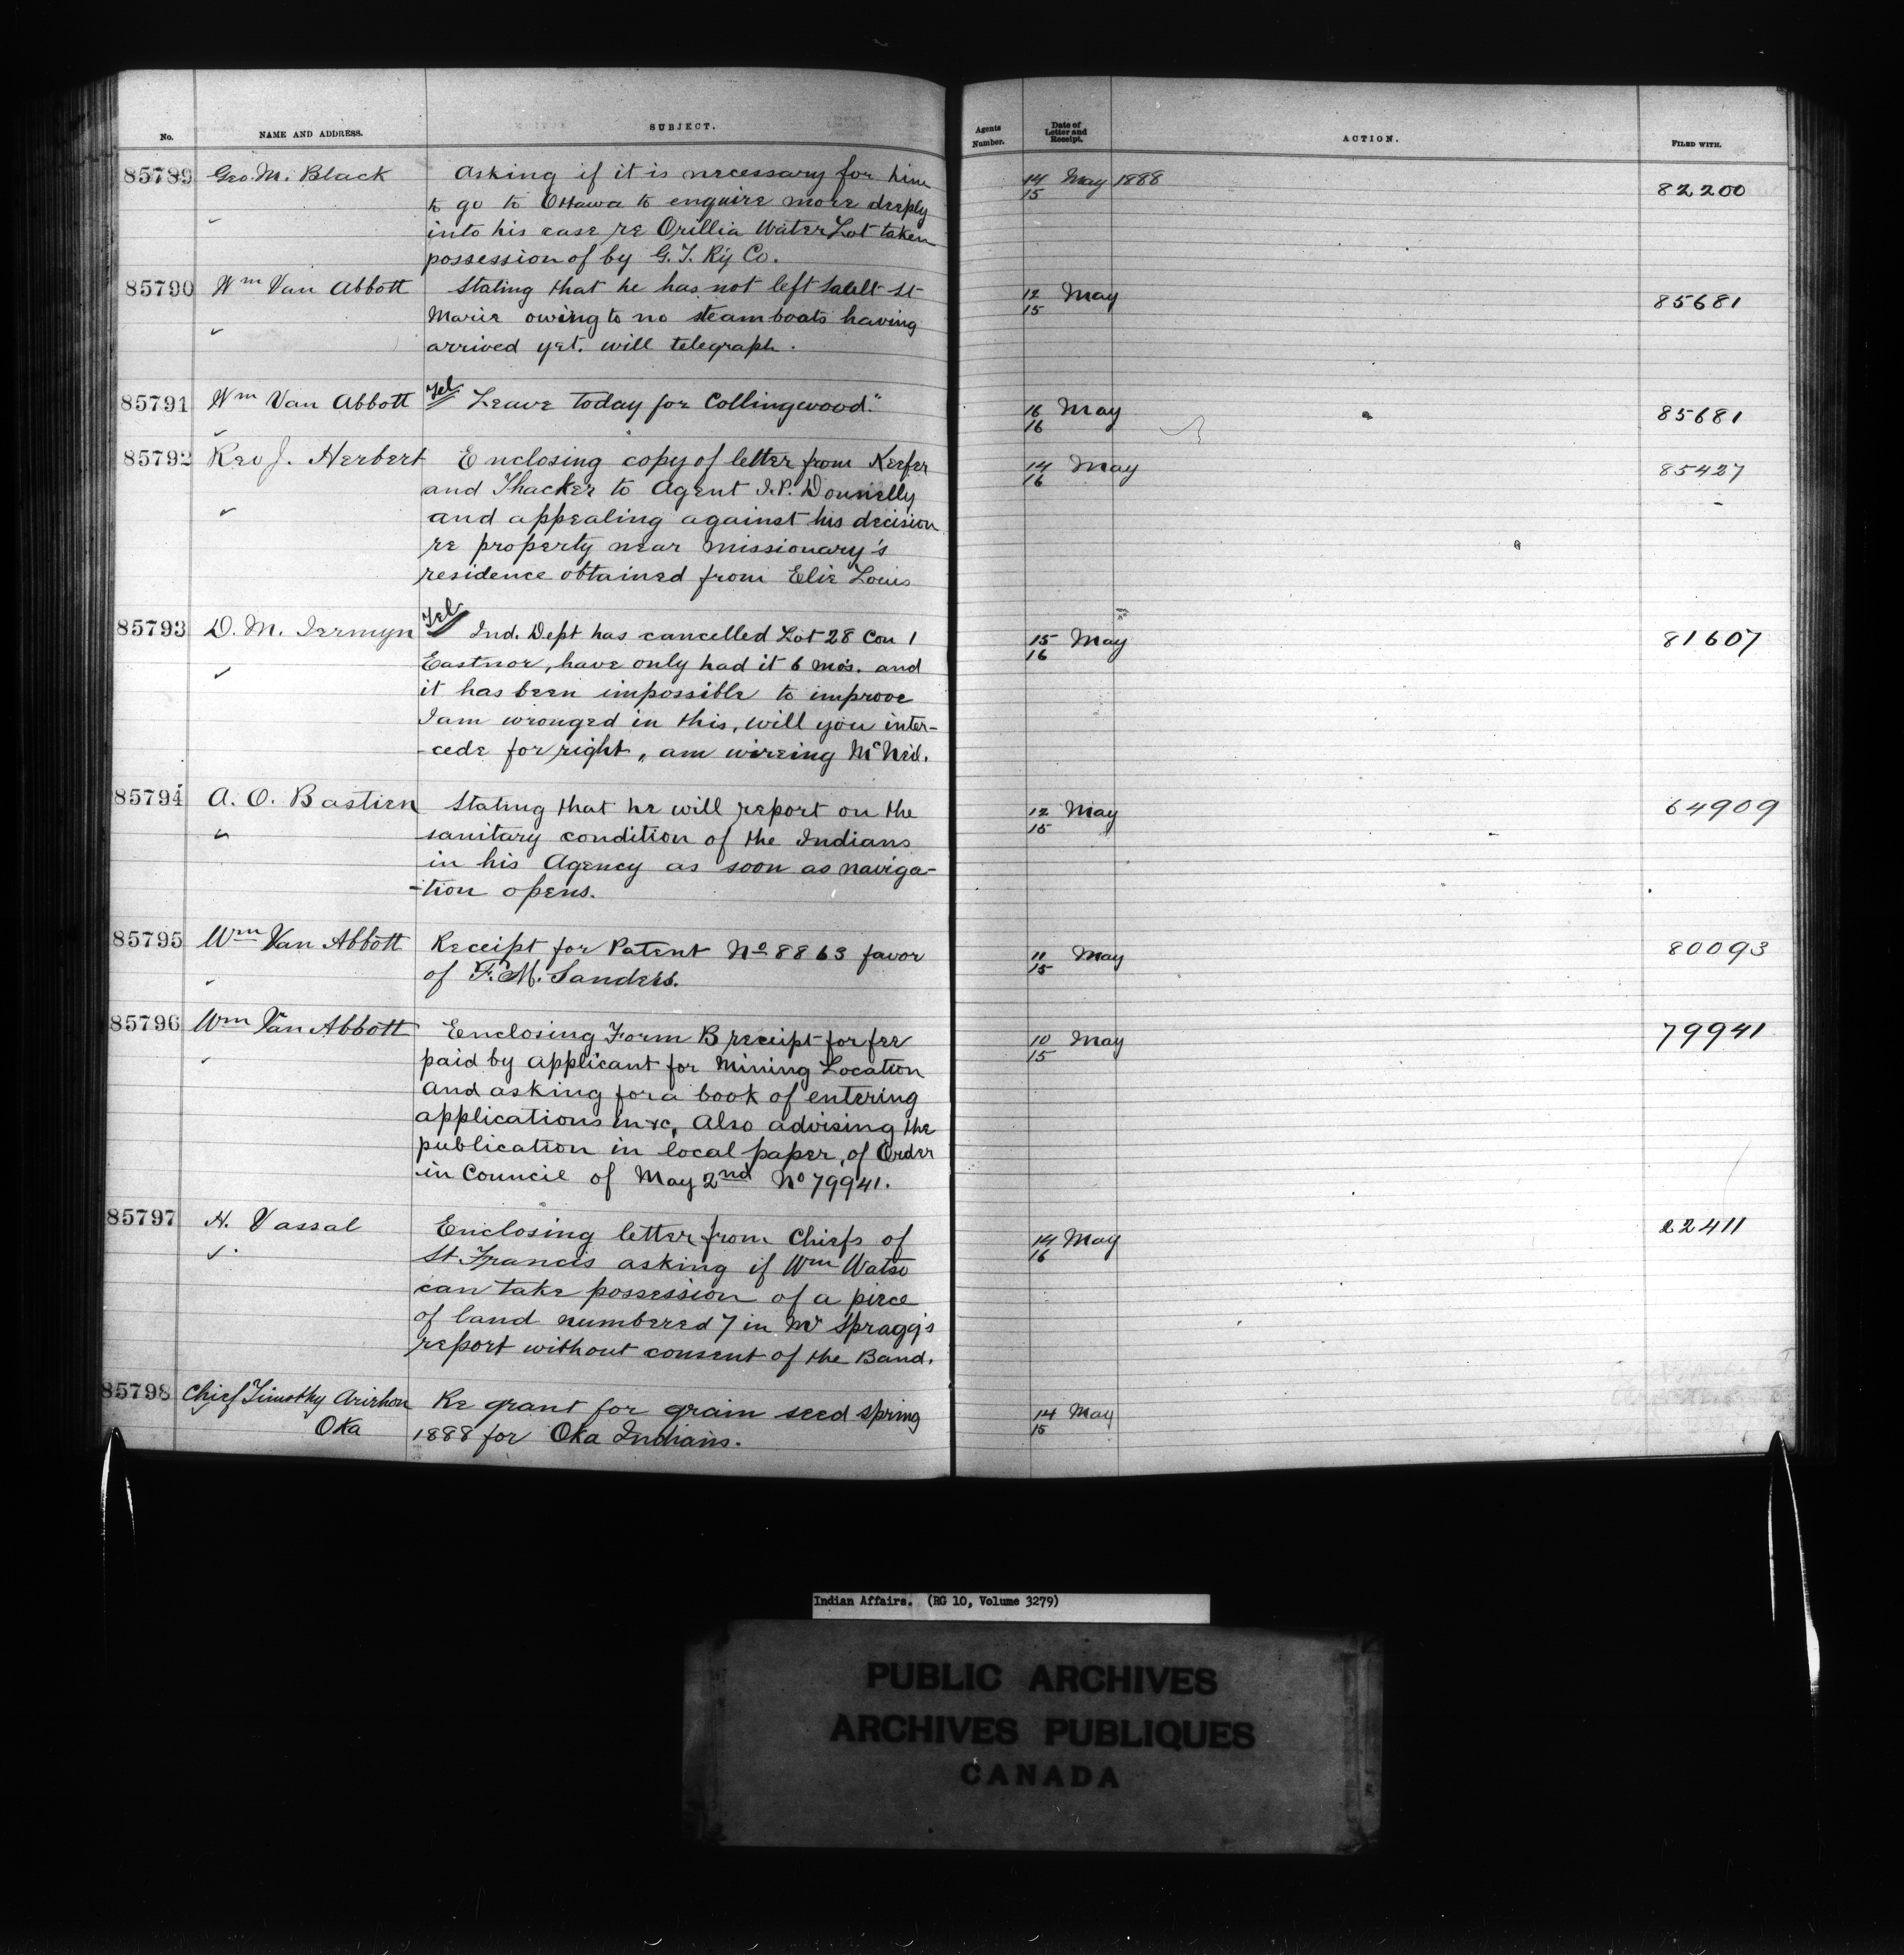 No. NAME AND ADDRESS. SUBJECT. Agents Number. Date of Letter and Receipt. ACTION. FILED WITH.
85789 Geo. M. Black Asking if it is necessary for him 14/15 May 1888 82200
to go to Ottawa to enquire more deeply
into his case re Orillia Water Lot taken
possession of by G. T. Ry Co.
85790 Wm Van Abbott Stating that he has not left Sault St 12/15 May 85681
Marie owing to no steamboats having
arrived yet. will telegraph.
85791 Wm Van Abbott Tel Leave today for Collingwood." 16/16 May 85681
85792 Rev J. Herbert Enclosing copy of letter from Keefer 14/16 May 85427
and Thacker to Agent J. P. Donnelly
and appealing against his decision
re property near Missionary's
residence obtained from Elie Louis
85793 D. M. Jermyn Tel Ind. Dept has cancelled Lot 28 Con 1 15/16 May 81607
Eastnor, have only had it 6 mos. and
it has been impossible to improve
I am wronged in this, will you inter-
-cede for right, am wireing McNeil.
85794 A. O. Bastien Stating that he will report on the 12/15 May 64909
sanitary condition of the Indians
in his Agency as soon as naviga-
-tion opens.
85795 Wm Van Abbott Receipt for Patent No 8863 favor 11/15 May 80093
of F. M. Sanders.
85796 Wm Van Abbott Eenclosing Form B receipt for fee 10/15 May 79941
paid by applicant for Mining Location
and asking for a book of entering
applications in &c, Also advising the
publication in local paper, of Order
in Council of May 2nd No 79941.
85797 H. Vassal Enclosing letter from Chiefs of 14/16 May 22411
St. Francis asking if Wm Watso
can take possession of a piece
of land numbered 7 in Mr Spragg's
report without consent of the Band.
85798 Chief Timothy Arirhon Re grant for grain seed spring 14/15 May
Oka 1888 for Oka Indians.
Indian Affairs. (RG 10, Volume 3279)
PUBLIC ARCHIVES
ARCHIVES PUBLIQUES
CANADA